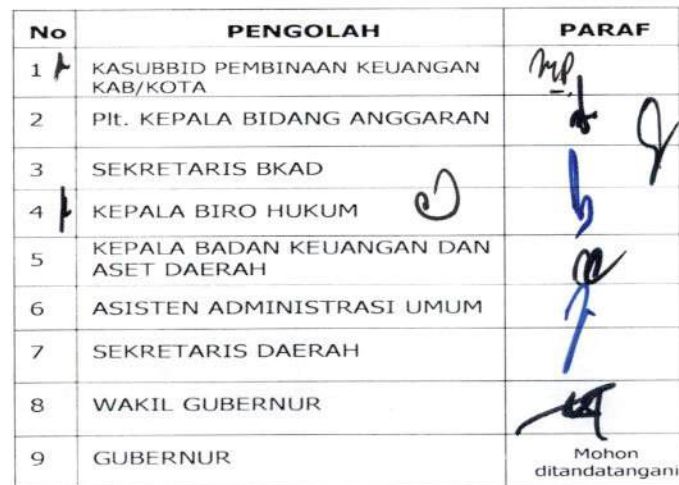 No PENGOLAH PARAF
1 KASUBBID PEMBINAAN KEUANGAN
KAB/KOTA
2 Plt. KEPALA BIDANG ANGGARAN
3 SEKRETARIS BKAD
4 KEPALA BIRO HUKUM
5 KEPALA BADAN KEUANGAN DAN
ASET DAERAH
6 ASISTEN ADMINISTRASI UMUM
7 SEKRETARIS DAERAH
8 WAKIL GUBERNUR
9 GUBERNUR Mohon
ditandatangani